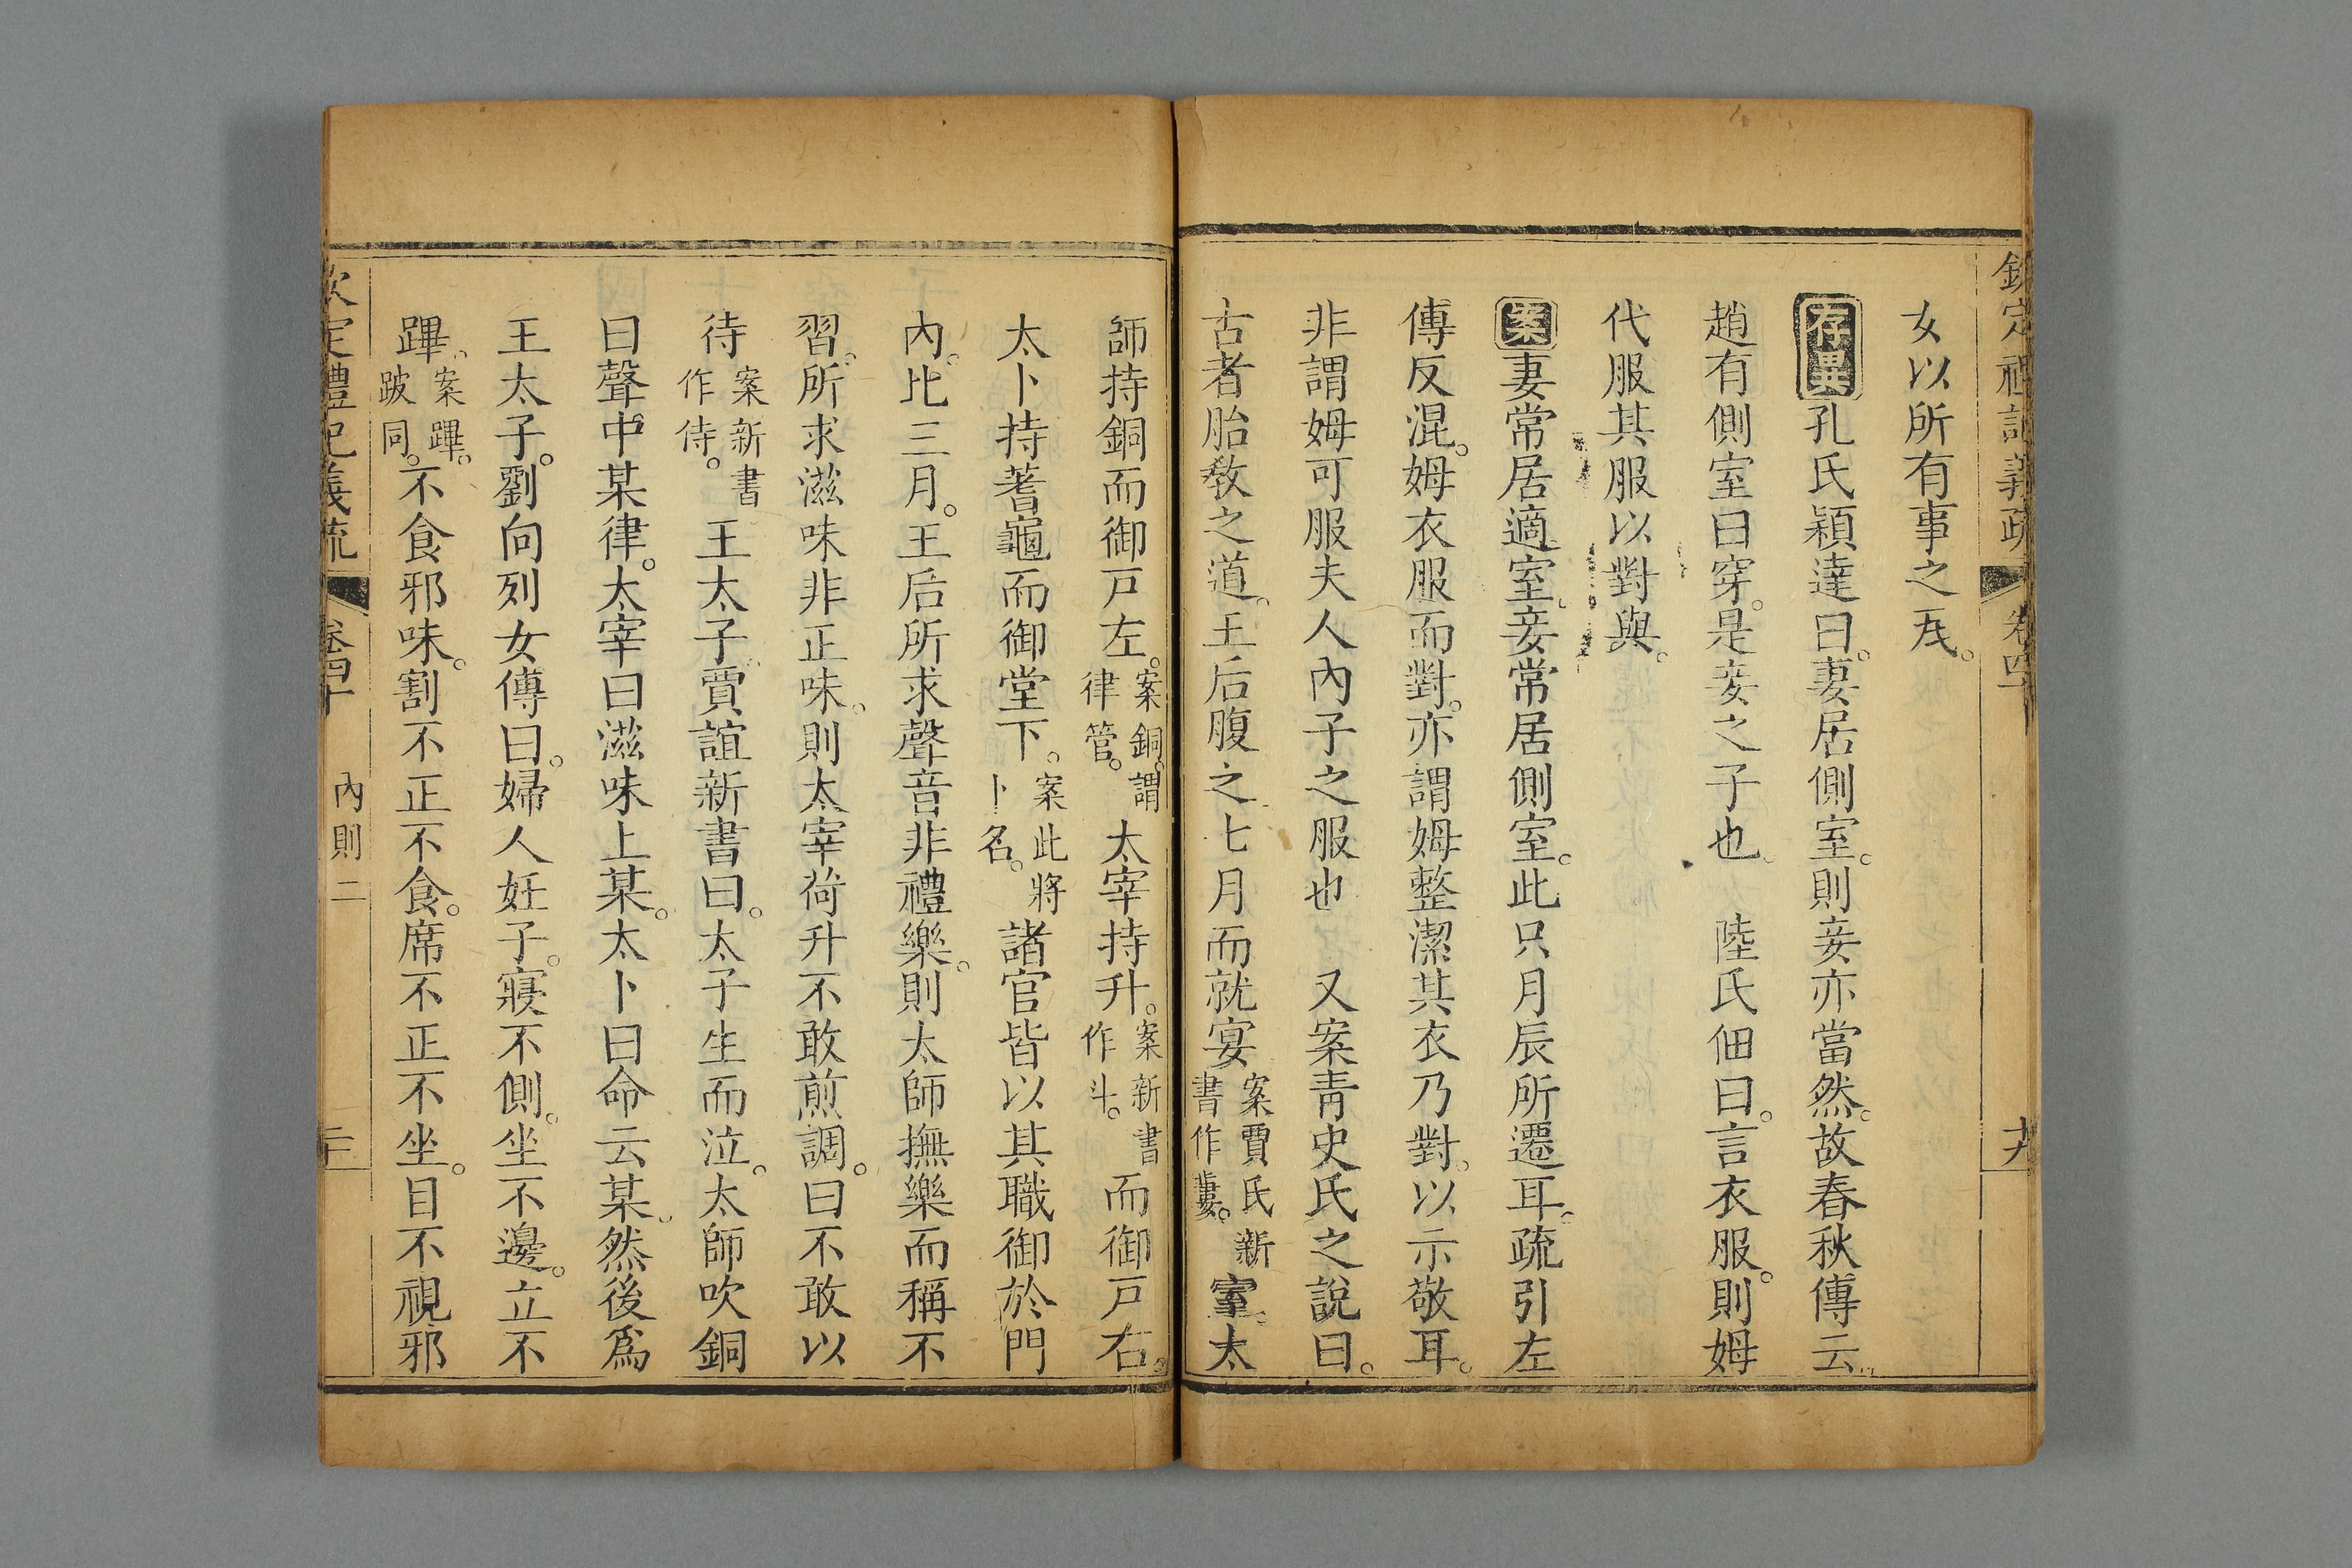 欽定禮記義疏 卷四十 十九
女以所有事之衣。
存異孔氏穎達曰。妻居側室。則妾亦當然。故春秋傳云。
趙有側室曰穿。是妾之子也。 陸氏佃曰。言衣服。則姆
代服其服以對與。
案妻常居適室。妾常居側室。此只月辰所遷耳。疏引左
傳反混。姆衣服而對。亦謂姆整潔其衣乃對。以示敬耳。
非謂姆可服夫人內子之服也 又案靑史氏之說曰。
古者胎敎之道。王后腹之七月而就宴案賈氏新書作蔞。室。太
師持銅而御戸左。案銅。謂律管。太宰持升。案新書作斗。而御戸右。
太卜持蓍龜而御堂下。案此將卜名。諸官皆以其職御於門
內。比三月。王后所求聲音非禮樂。則太師撫樂而稱不
習。所求滋味非正味。則太宰荷升不敢煎調。曰不敢以
待案新書作侍。王太子賈誼新書曰。太子生而泣。太師吹銅
曰聲中某律。太宰曰滋味上某。太卜曰命云某。然後爲
王太子。劉向列女傳曰。婦人妊子。寢不側。坐不邊。立不
蹕。案蹕。跛同。不食邪味。割不正不食。席不正不坐。目不視邪
欽定禮記義疏 卷四十 內則二 二十